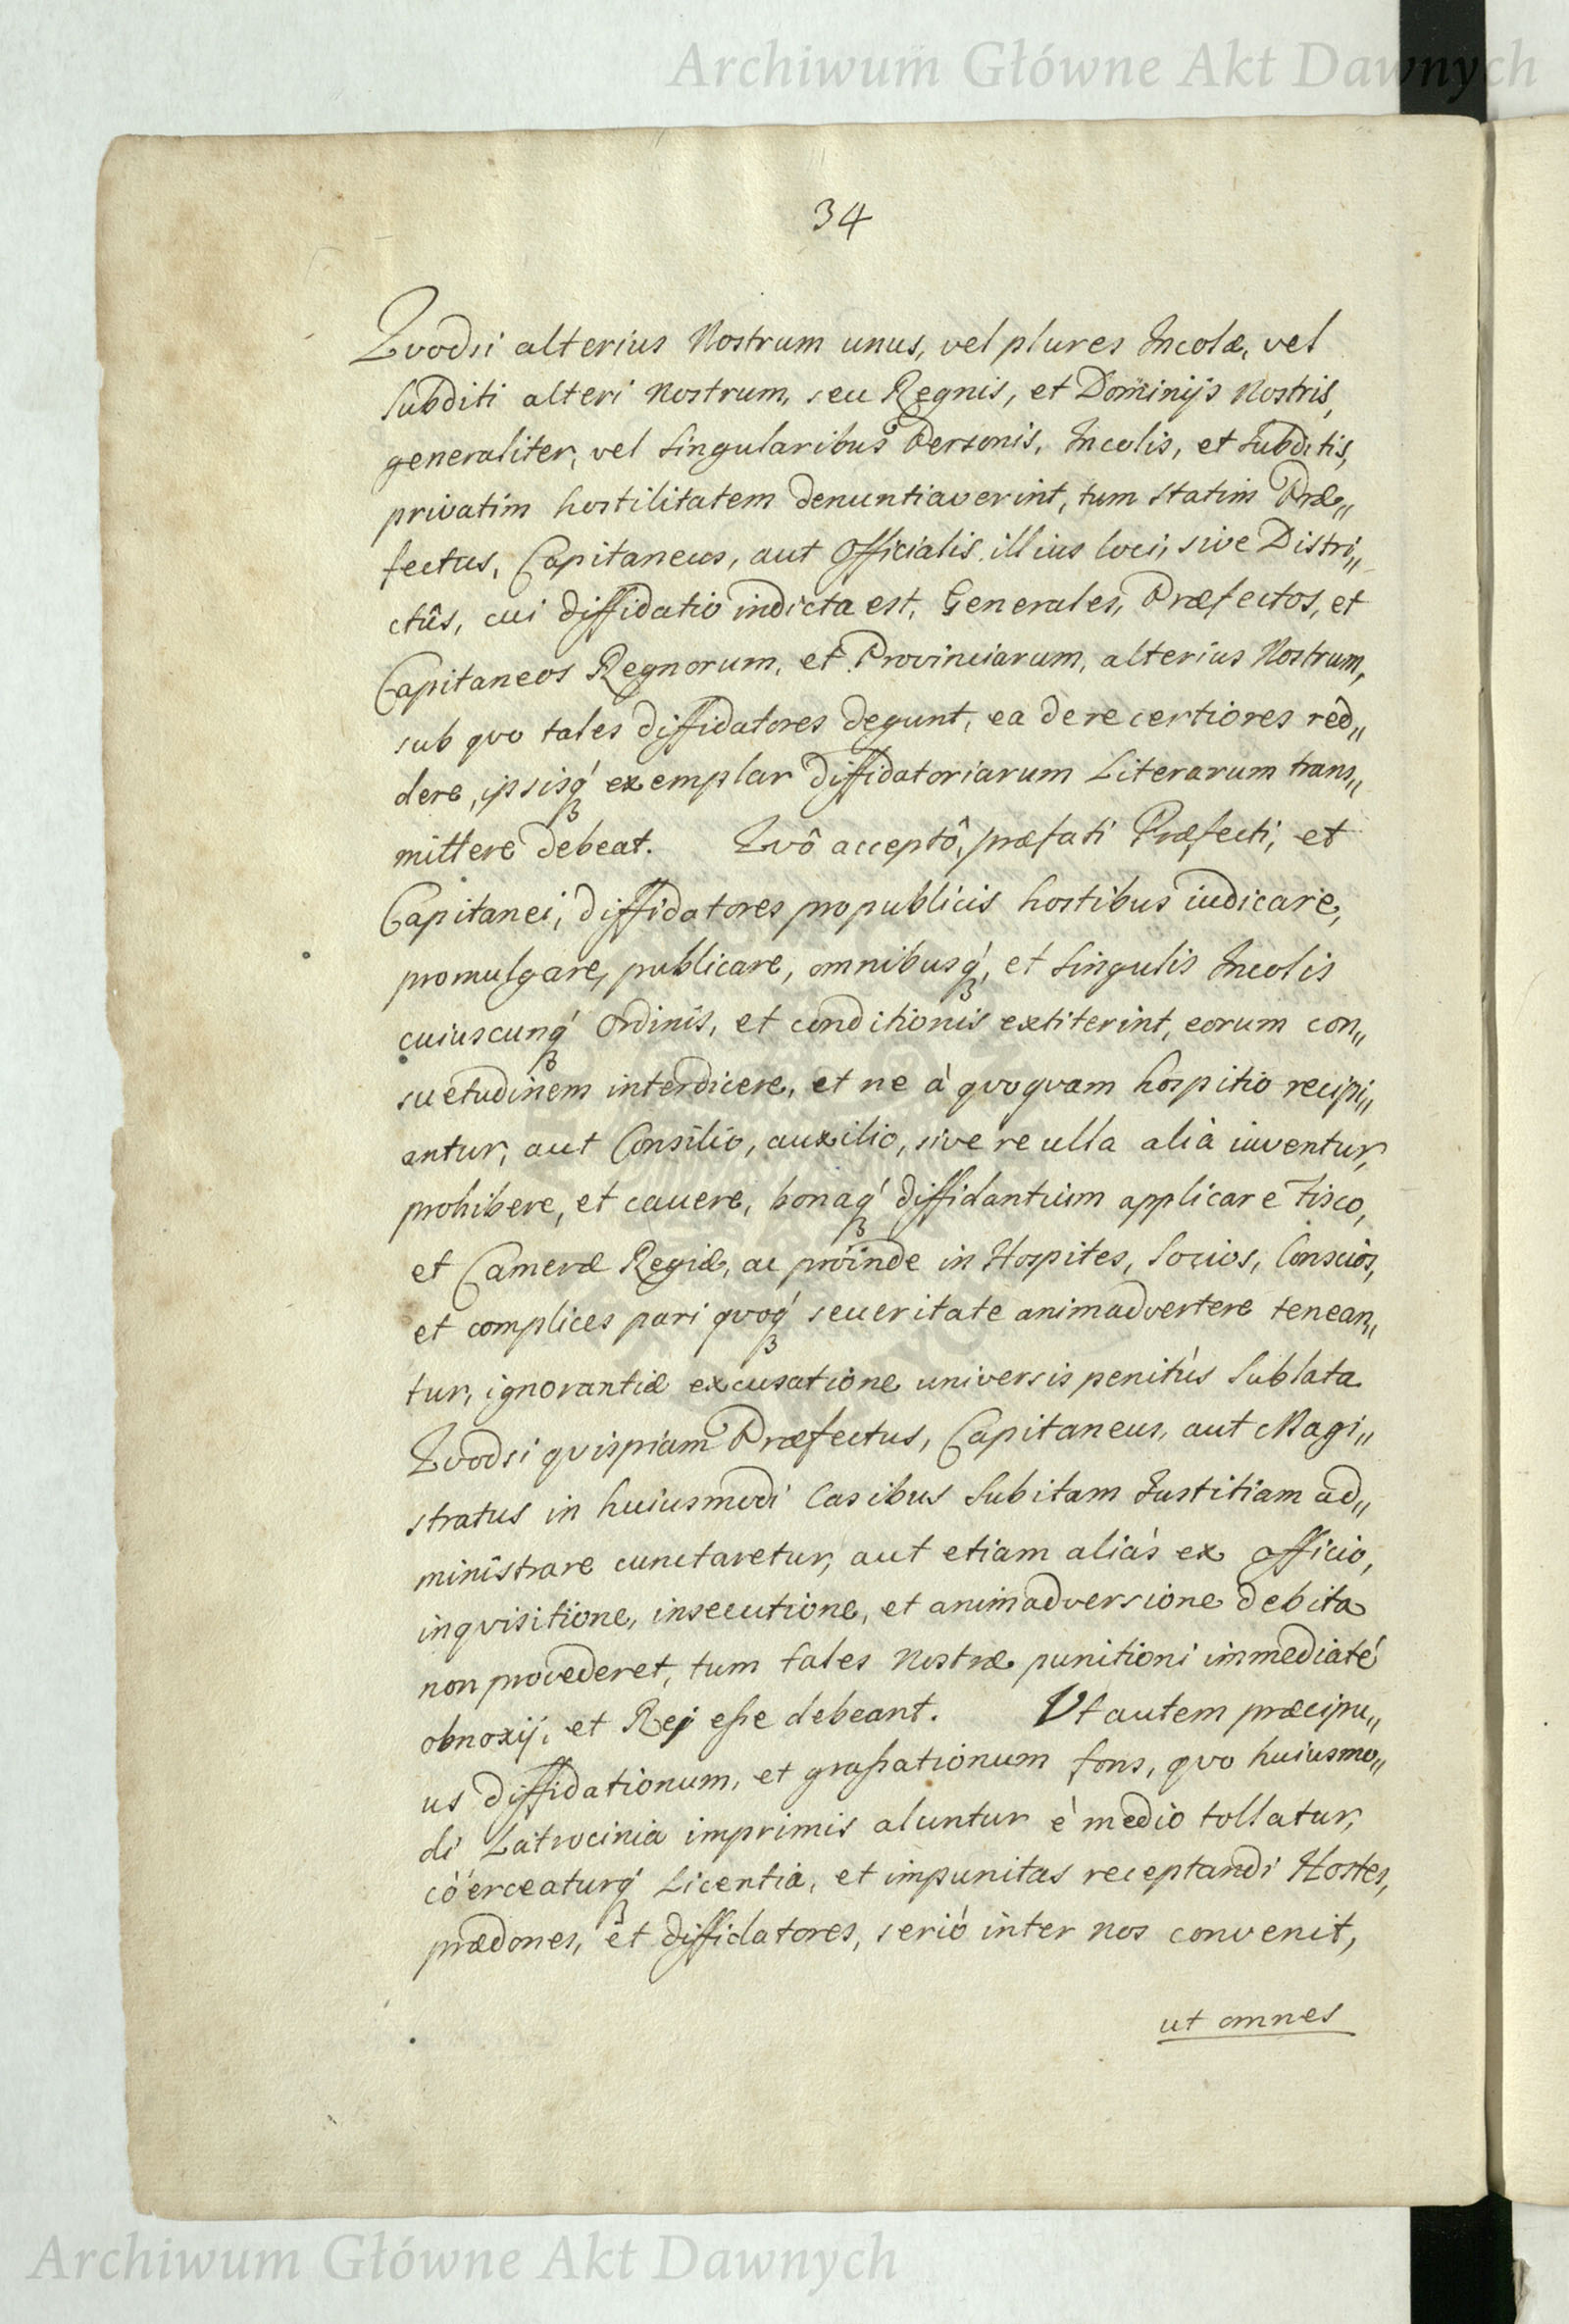 Archiwum Główne Akt Dawnych
34
Quodsi alterius Nostrum unus, vel plures Incolæ, vel
Subditi alteri Nostrum, seu Regnis, et Dominijs Nostris,
generaliter, vel singularibus Personis, Incolis, et Subditis,
privatim hostilitatem denuntiaverint, tum statim Præ„
fectus, Capitaneus, aut Officialis illius loci, sive Distri„
ctûs, cui diffidatio indicta est, Generales, Præfectos, et
Capitaneos Regnorum, et Provinciarum, alterius Nostrum,
sub quo tales diffidatores degunt, ea de re certiores red„
dere, ipsisq́ exemplar diffidatoriarum Literarum trans„
mittere debeat. Quô acceptô, præfati Præfecti, et
Capitanei, diffidatores pro publicis hostibus iudicare,
promulgare, publicare, omnibusq́, et singulis Incolis
cuiuscunq́ Ordinis, et conditionis extiterint, eorum con„
suetudinem interdicere, et ne à quoquam hospitio recipi„
antur, aut Consilio, auxilio, sive re ulla alia iuventur,
prohibere, et cauere, bonaq́ diffidantium applicare Fisco,
et Cameræ Regiæ, ac proinde in Hospites, Socios, Conscios,
et complices pari quoq́ seueritate animadvertere tenean„
tur, ignorantiæ excusatione universis penitùs Sublata
Quodsi quispiam Præfectus, Capitaneus, aut Magi„
stratus in huiusmodi Casibus Subitam Iustitiam ad„
ministrare cunctaretur, aut etiam aliàs ex officio,
inquisitione, insecutione, et animadversione debita
non provederet, tum tales Nostræ punitioni immediaté
obnoxij, et Rej eße debeant. Ut autem præcipu„
us diffidationum, et graßationum fons, quo huiusmo„
di Latrocinia imprimis aluntur è medio tollatur,
cöerceaturq́ Licentia, et impunitas receptandi Hostes,
prædones, et diffidatores, serió inter nos convenit,
ut omnes
Archiwum Główne Akt Dawnych